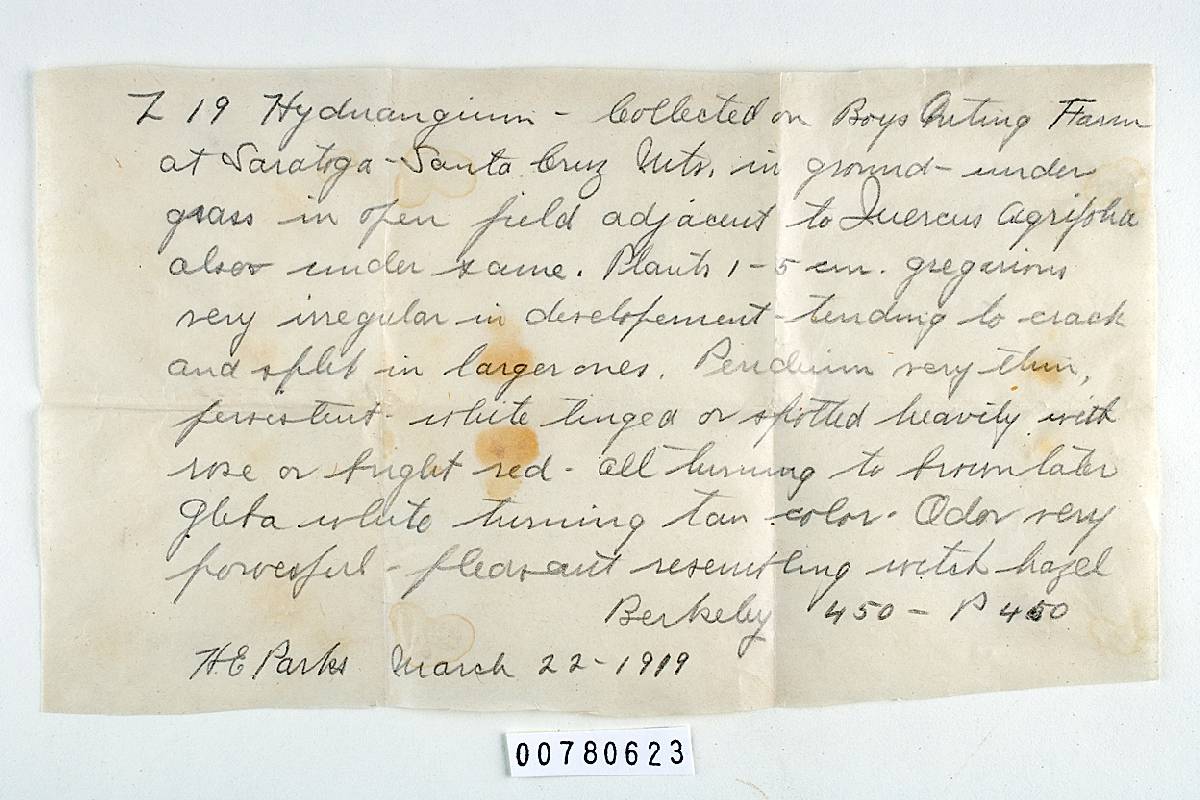 Z 19 Hydnangium - Collected on Boys Outing Farm
at Saratoga - Santa Cruz Mts. in ground - under
grass in open field adjacent to Quercus Agrifolia
also under same. Plants 1-5 cm. gregarious
very irregular in developement - tending to crack
and split in larger ones. Peridium very thin,
persistent - white tinged or spotted heavily with
rose or bright red - all turning to brown later
Gleba white turning tan color. Odor very
powerful - pleasant resembling witch hazel
Berkeley 450 - P 450
H.E Parks March 22-1919
00780623